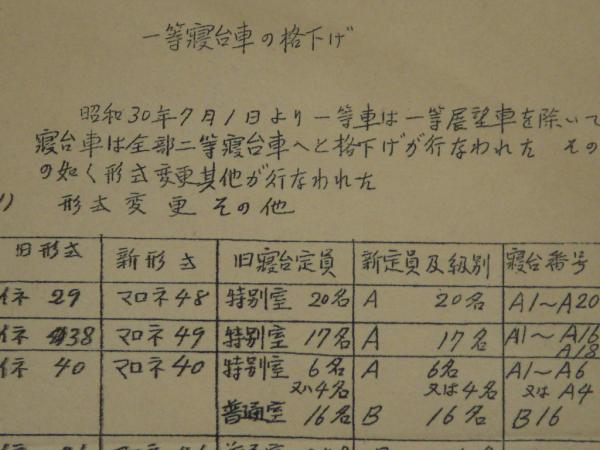 一等寝台車の格下げ
昭和30年7月1日より一等車は一等展望車を除いて
寝台車は全部二等寝台車へと格下げが行なわれた その
の如く形式変更其他が行なわれた
1) 形式変更 その他
旧形式 新形式 旧寝台定員 新定員及級別 寝台番号
イネ 29 マロネ48 特別室 20名 A 20名 A1～A20
イネ 38 マロネ49 特別室 17名 A 17名 A1～A16
A18
イネ 40 マロネ40 特別室 6名 A 6名 A1～A6
又ハ4名 又は4名 又は A4
普通室 16名 B 16名 B16